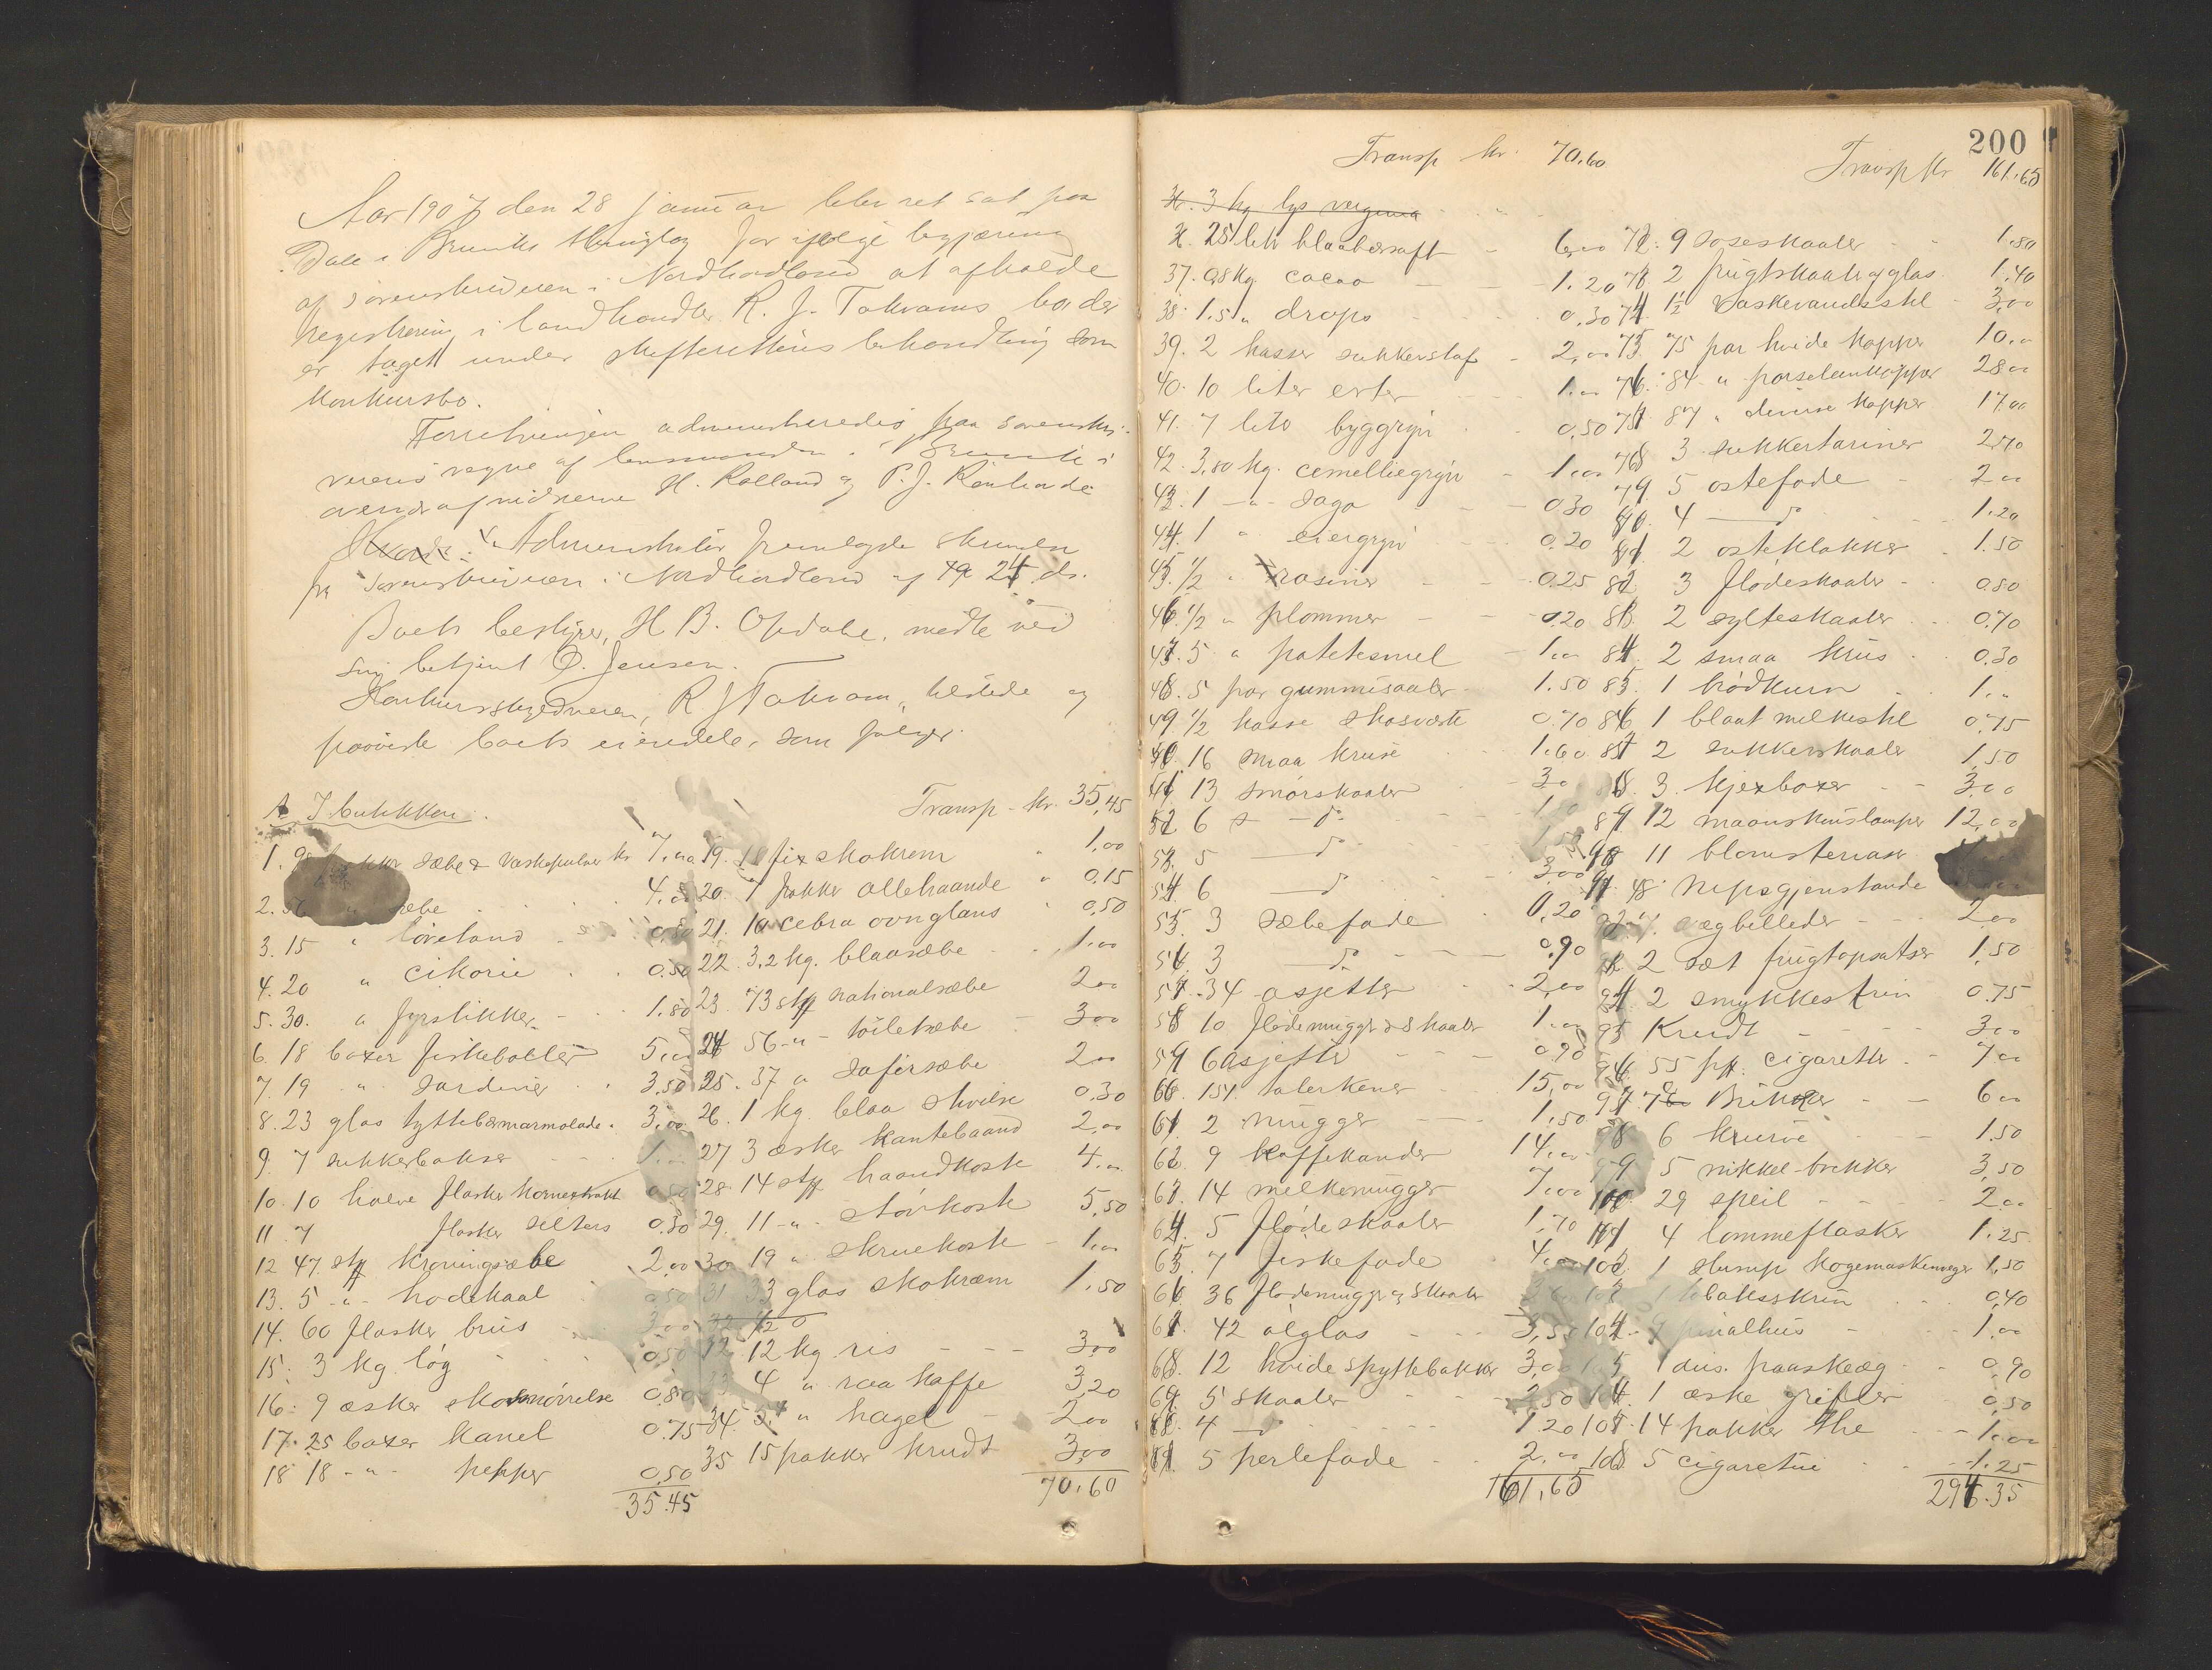 Aar 1907 den 28 januar blev ret sat paa
Dale i Bruviks thinglag for ifølge begjæring
af sorenskriveren i Nordhordland at afholde
registrering i landhandler R. J. Takvams bo der
er taget under skifterettens behandling som
konkursbo.
Forretningen administreredes paa sorenskri-
verens vegne af lensmanden i Bruvik i
overvær af vidnerne H. Rolland og P. J.
Administrator fremlagde skrivelse
fra sorenskriveren i Nordhordland af 24 ds.
Boets bestyrer, H. B. Opdahl, mødte ved
sin betjent O. Jensen.
Konkursskyldneren, R J Takvam, tilstede og
paaviste boets eiendele, som følger.
A I butikken.
Transp. kr. 35,45
1. pakker sæbe & vaskepulver kr 7,00
2. 56 " sæbe 4.00
3. 15 " løvetand
4. 20 " cikorie 0.50
5. 30. " fyrstikker 1.80
6. 18 boxer fiskeboller 5,00
7. 19 " sardiner 3,50
8. 23 glas tyttebærmarmolade 3,00
9. 7 sukkerbakser 1,00
10. 10 halve flasker 0,50
11. 7 flasker selters 0,30
12 47 stk kroningsæbe 2,00
13. 5 -"- hodekaal 0,50
14. 60 flasker brus 3,00
15. 3 kg. løg 0,50
16. 9 æsker skosmørrelse 0,80
17. 25 boxer kanel 0.75
18 18 -"- pepper 0,50
35.45
19. fix skokrem " 1,00
20. 1 pakker allehaande " 0,15
21. 10 cebra ovnglans " 0,50
22. 3,2 kg. blaasæbe 1,00
23. 73 stk nationalsæbe 2,00
24 56 -"- toiletsæbe 3,00
25. 37 " safirsæbe 2,00
26. 1 kg. blaa stivelse 0,30
27 3 æsker kantebaand 2,00
28. 14 stk haandkoste 4,00
29. 11 -"- støvkoste 5,50
30 19 " skruekoste 1,00
31 33 glas skokræm 1,50
32 12 kg ris 3,00
33 4 " raa kaffe 3,20
34. " hagel 2,00
35 15 pakker krudt 3,00
70,60
200
Transp kr. 70.60
3 kg lys
25 liter blaabærsaft 6,00
37. 0,8 kg. cacao 1.20
38. 1.5 " drops 0.30
39. 2 kasser sukkerstof 2,00
40. 10 liter erter 1,00
41. 7 liter byggryn 0,50
42. 3,80 kg. cemelliegryn 1,00
43. 1 -"- sago 0.30
44. 1 " eiergryn 0.20
45. 1/2 " rosiner 0.25
46. 1/2 " plommer 0.20
47. 5 " potetesmel 1,00
48. 5 par gummisaaler 1.50
49 1/2 kasse skosværte 0.70
16 smaa kruse 1.60
13 smørskaaler 3,0
52 6 do
53. 5 do
54 6 do 3,00
55. 3 sæbefade 0,20
56. 3 do 0.90
57. 34 asjetter 2,00
58 10 flødemugger & skaaler 1.00
59 6 asjetter 0.90
60. 151 talerkener 15,00
61 2 mugger 1,50
62. 9 kaffekander 14,00
63. 14 melkemugger 7,00
64. 5 flødeskaaler 1,70
65. 7 fiskefade 4,00
66. 36 flødemugger og skaaler
67. 42 ølglas 3,50
68. 12 hvide spyttebakker 3,00
69. 5 skaaler 2,50
4 do 1.20
5 perlefade 2.00
161,65
Transp kr 161.65
72. 9 soseskaaler 1.80
73. 2 frugtskaaler af glas 1.40
74. 1 1/2 vaskevandsstel 3,00
75. 75 par hvide kopper 10,00
76. 84 " porselenkopper 28,00
77 87 " diverse kopper 17,00
78 3 sukkertariner 2,70
79 5 ostefade 2,00
80. 4 do 1.20
81 2 osteklokker 1.50
82 3 flødeskaaler 0.80
83. 2 sylteskaaler 0,70
84. 2 smaa krus 0.30
85. 1 brødkurv 1,00
86 1 blaat melkestel 0,75
87 2 sukkerskaaler 1,50
88. 3. kjexboxer 3,00
89 12 maaneskinslamper 12,00
11 blomstervaser
48 nipsgjenstande
vægbilleder 2,00
2 sæt frugtopsatser 1,50
94 2 smykkeskrin 0.75
95 Krudt 3,00
96. 55 pk. cigaretter 7,00
97 Brikker 6,00
98 6 kurve 1.50
99 5 nikkel-brekker 3,50
100 29 speil 2,00
101 4 lommeflasker 1.25
102. 1 slump kogemaskinveger 1,50
103 1 tobaksskrin 0,40
104 9 penalhus 1,00
105 1 dus. paaskeæg 0,90
106. 1 æske grifler 0,50
107. 14 pakker the 1,00
108 5 cigaretui 1.25
294.35